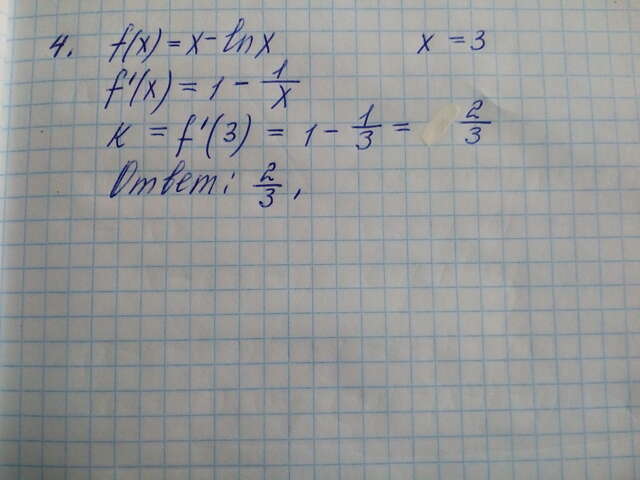 4. f(x) = x - ln x x = 3
f'(x) = 1 - 1/x
k = f'(3) = 1 - 1/3 = 2/3
Ответ: 2/3,